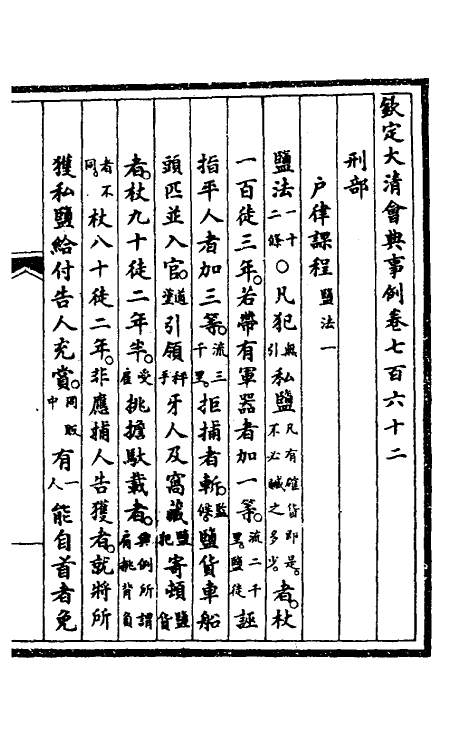 欽定大清會典事例卷七百六十二
刑部
戶律課程鹽法一
鹽法一十二條○凡犯無引私鹽凡有確貨即是。不必贓之多少。者。杖
一百徒三年。若帶有軍器者加一等。流二千里。鹽徒誣
指平人者加三等。流三千里。拒捕者斬。監候。鹽貨車船
頭匹並入官。道塗引領秤手牙人及窩藏鹽犯寄頓鹽貨
者。杖九十徒二年半。受雇挑擔馱載者。與例所謂肩挑背負
者不同。杖八十徒二年。非應捕人告獲者。就將所
獲私鹽給付告人充賞。同販中有一人能自首者免